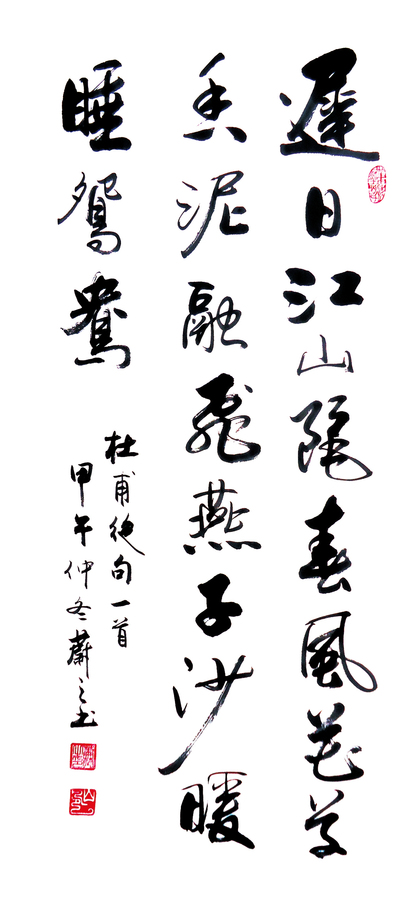 遲日江山麗春風花草
香泥融飛燕子沙暖
睡鴛鴦
杜甫绝句一首
甲午仲冬